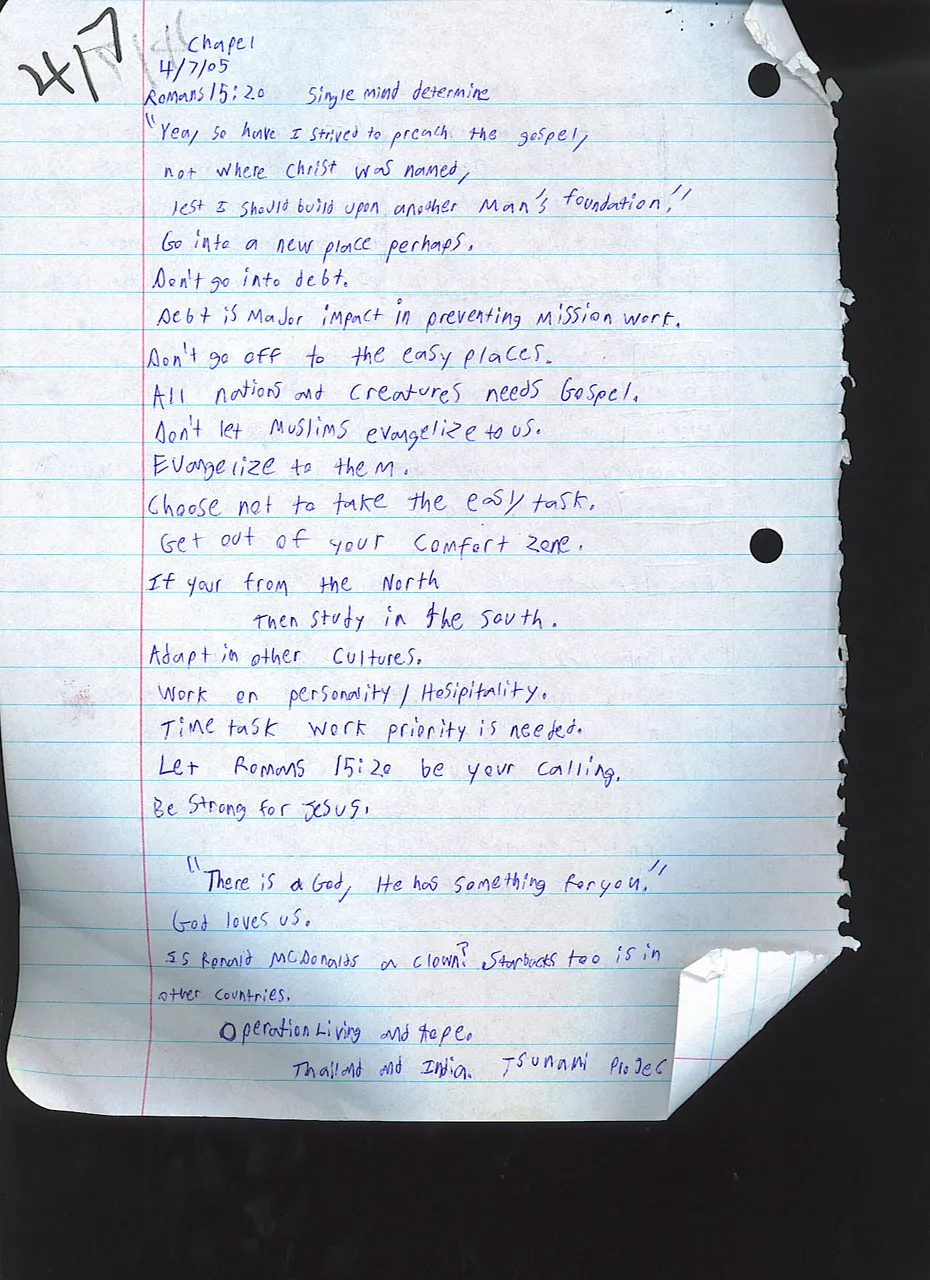 4/7
Chapel
4/7/05
Romans 15:20 Single mind determine
"Yea, so have I strived to preach the gospel,
not where Christ was named,
lest I should build upon another Man's foundation."
Go into a new place perhaps.
Don't go into debt.
Debt is Major impact in preventing Mission work.
Don't go off to the easy places.
All nations and Creatures needs Gospel.
Don't let Muslims evangelize to us.
Evangelize to them.
Choose not to take the easy task.
Get out of your Comfort zone.
If your from the North
then study in the South.
Adapt in other Cultures.
Work on personality / Hesipitality.
Time task work priority is needed.
Let Romans 15:20 be your calling.
Be Strong for Jesus.
"There is a God, He has something for you."
God loves us.
Is Ronald McDonalds a clown? Starbucks too is in
other countries.
Operation Living and Hope.
Thailand and India. Tsunami Projec